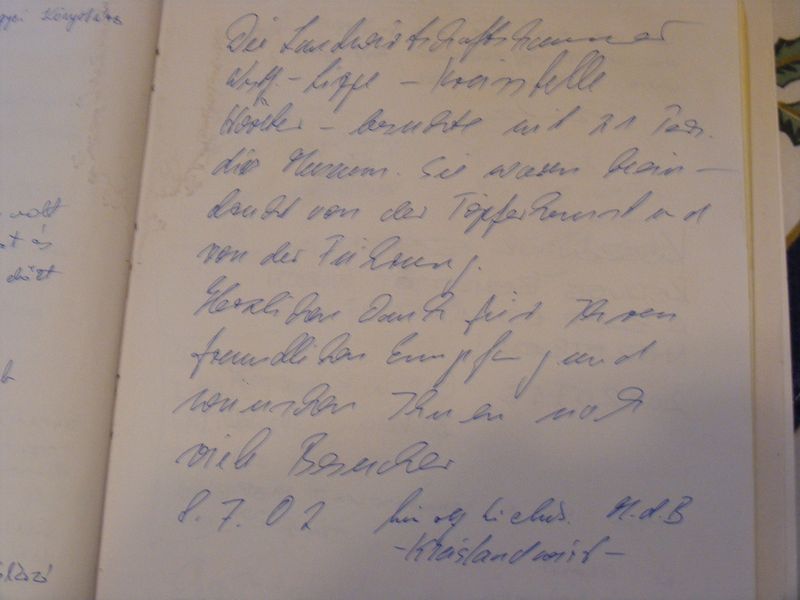 gyei Könyvtáros
Die Landwirtschaftskammer
Westf. - Lippe - Kreisstelle
Höxter - besuchte mit 21 Pers.
die Museum. Sie waren beein-
druckt von der Töpferkunst und
von der Führung.
Herzlichen Dank für Ihren
freundlichen Empfang und
wünschen Ihnen noch
viele Besucher
8.7.02 M.d.B
- Kreislandwirt -
volt
és